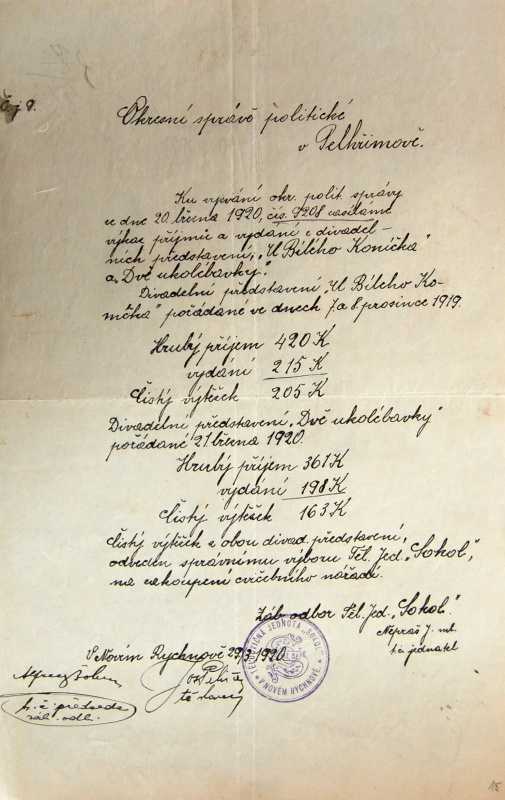 Čj 9.
Okresní správě politické
v Pelhřimově.
Ku vyzvání okr. polit. správy
ze dne 20. března 1920, čís. 9208 zasíláme
výkaz příjmů a vydání z divadel-
ních představení, "U Bílého Koníčka"
a "Dvě ukolébavky".
Divadelní představení, "U Bílého Ko-
níčka" pořádané ve dnech 7. a 8. prosince 1919.
Hrubý příjem 420 K
vydání 215 K
Čistý výtěžek 205 K
Divadelní představení "Dvě ukolébavky"
pořádané 21. března 1920.
Hrubý příjem 361 K
vydání 198 K
Čistý výtěžek 163 K
Čistý výtěžek z obou divad. představení,
odveden správnímu výboru Těl. Jed. "Sokol",
na zakoupení cvičebního nářadí.
Záb. odbor Těl. Jed. "Sokol".
Nepraš J. ml.
t. č. jednatel
V Novém Rychnově 29/3 1920
TĚLOCVIČNÁ JEDNOTA "SOKOL"
V NOVÉM RYCHNOVĚ
t. č. předseda
záb. odb.
15